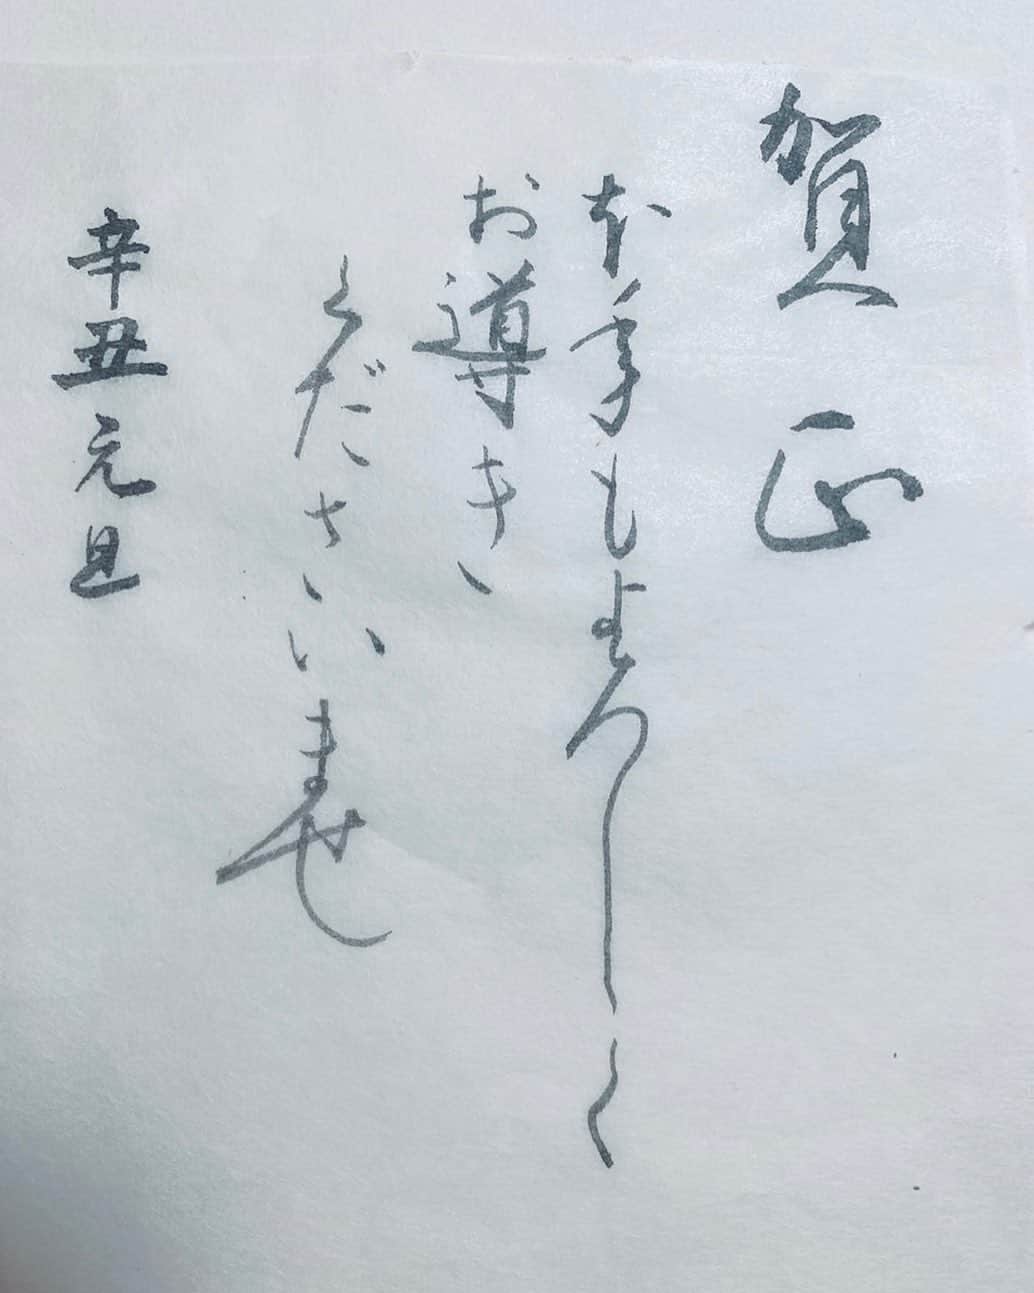 賀正
本年もよろしく
お導き
くださいませ
辛丑元旦